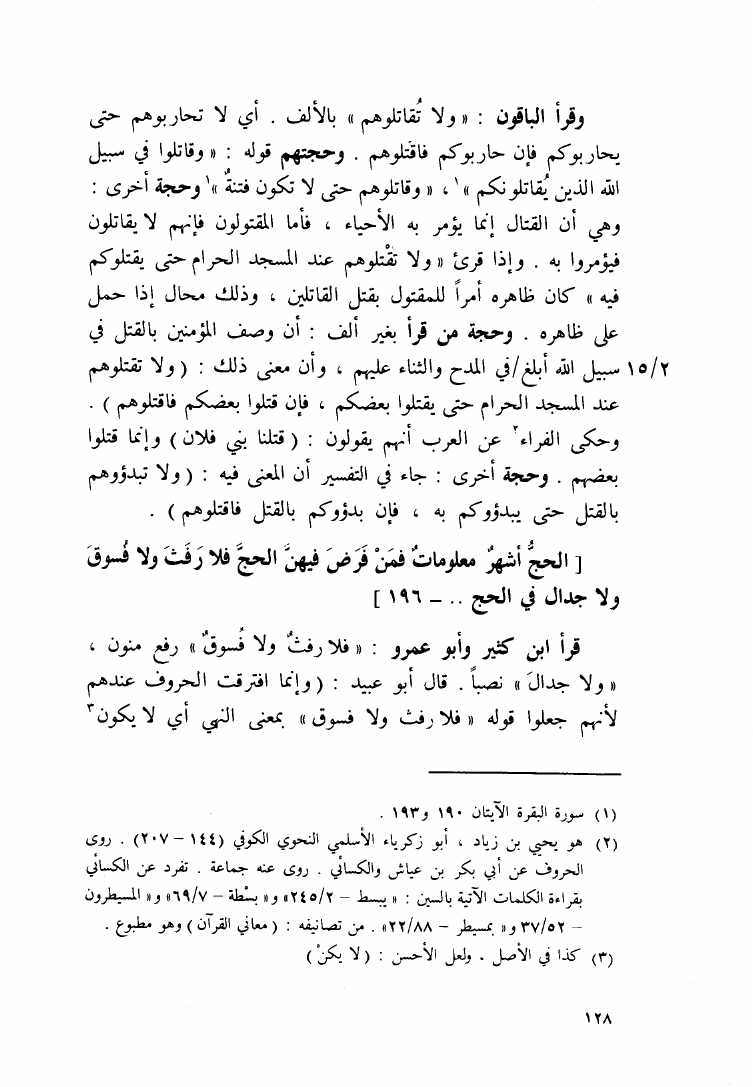 وقرأ الباقون : « ولا تُقاتلوهم » بالألف . أي لا تحاربوهم حتى
يحاربوكم فإن حاربوكم فاقتلوهم . وحجتهم قوله : « وقاتلوا في سبيل
الله الذين يُقاتلونكم »١ ، « وقاتلوهم حتى لا تكون فتنةٌ »١ وحجة أخرى :
وهي أن القتال إنما يؤمر به الأحياء ، فأما المقتولون فإنهم لا يقاتلون
فيؤمروا به . وإذا قرئ « ولا تقْتلوهم عند المسجد الحرام حتى يقتلوكم
فيه » كان ظاهره أمراً للمقتول بقتل القاتلين ، وذلك محال إذا حمل
على ظاهره . وحجة من قرأ بغير ألف : أن وصف المؤمنين بالقتل في
١٥/٢ سبيل الله أبلغ/في المدح والثناء عليهم ، وأن معنى ذلك : ( ولا تقتلوهم
عند المسجد الحرام حتى يقتلوا بعضكم ، فإن قتلوا بعضكم فاقتلوهم ) .
وحكى الفراء٢ عن العرب أنهم يقولون : ( قتلنا بني فلان ) وإنما قتلوا
بعضهم . وحجة أخرى : جاء في التفسير أن المعنى فيه : ( ولا تبدؤوهم
بالقتل حتى يبدؤوكم به ، فإن بدؤوكم بالقتل فاقتلوهم ) .
[ الحجُّ أشهرٌ معلوماتٌ فمَنْ فَرَضَ فيهنَّ الحجَّ فلا رَفَثَ ولا فُسوقَ
ولا جدال في الحج .. – ١٩٦ ]
قرأ ابن كثير وأبو عمرو : « فلا رفثٌ ولا فُسوقٌ » رفع منون ،
« ولا جدالَ » نصباً . قال أبو عبيد : ( وإنما افترقت الحروف عندهم
لأنهم جعلوا قوله « فلا رفث ولا فسوق » بمعنى النهي أي لا يكون٣
(١) سورة البقرة الآيتان ١٩٠ و١٩٣ .
(٢) هو يحيى بن زياد ، أبو زكرياء الأسلمي النحوي الكوفي (١٤٤ – ٢٠٧) . روى
الحروف عن أبي بكر بن عياش والكسائي . روى عنه جماعة . تفرد عن الكسائي
بقراءة الكلمات الآتية بالسين : « يبسط – ٢٤٥/٢» و« بسْطة – ٦٩/٧» و« المسيطرون
– ٣٧/٥٢ و« بمسيطر – ٢٢/٨٨» . من تصانيفه : ( معاني القرآن ) وهو مطبوع .
(٣) كذا في الأصل . ولعل الأحسن : ( لا يكنْ )
١٢٨